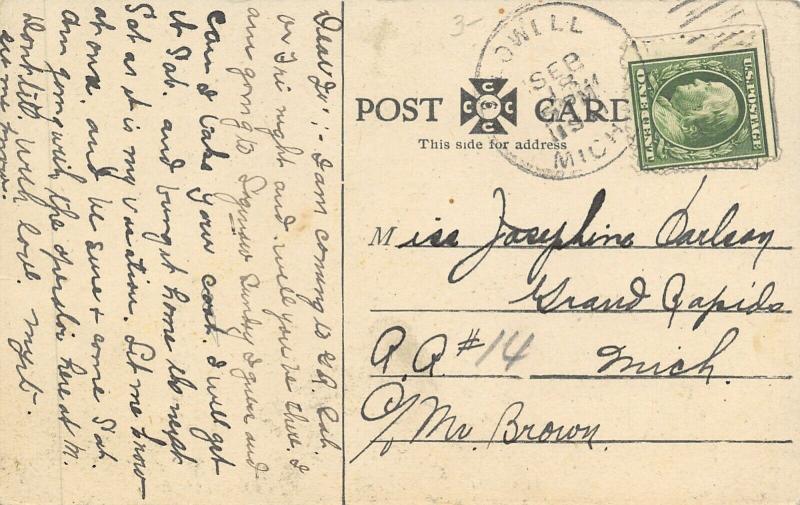 Dear Jo :- I am coming to G R. Sat.
or Fri night and will you be there. I
am going to Sunday I guess and
can I take your coat. I will get
it Sat. and bring it home the next
Sat as it is my vacation. Let me know
at once. and be sure & come Sat.
Am going with the operator here at M.
Don't tell. With love. Myrt.
let me know.
3-
LOWELL
SEP
MICH
POST CARD
This side for address
U.S. POSTAGE
ONE CENT
Miss Josephine Carlson
Grand Rapids
R. R #14 Mich.
C/o Mr. Brown.